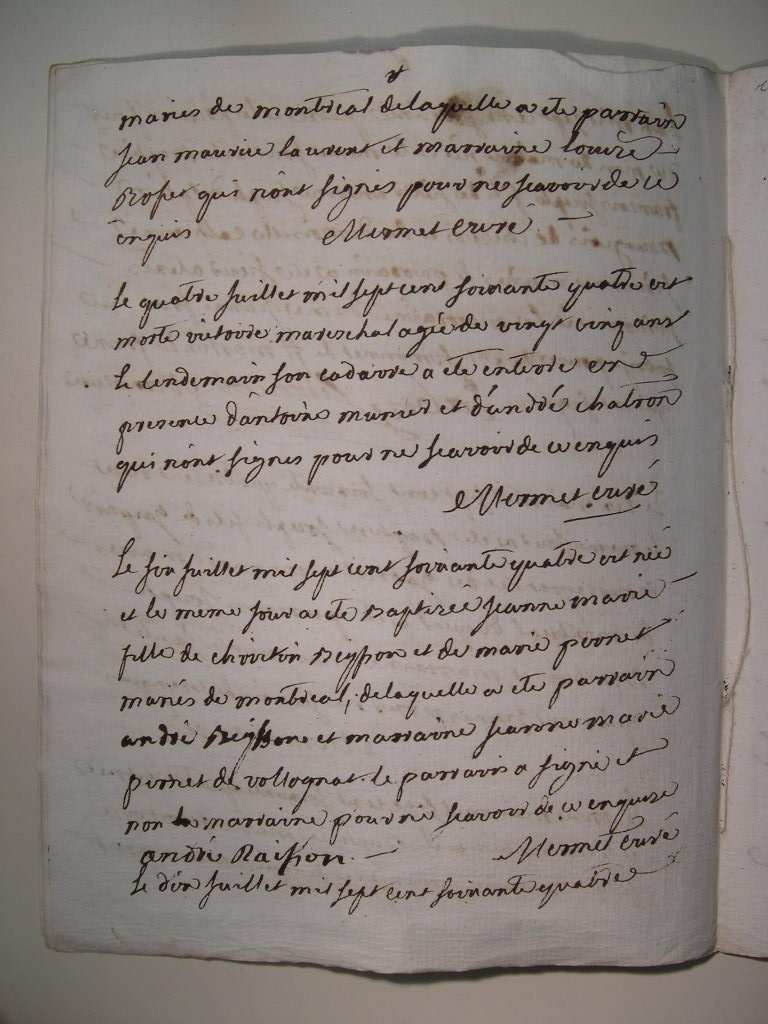 mariés de montreal delaquelle a ete parrain
jean maurice laurent et marraine louise
Roset qui n'ont signés pour ne scavoir de ce
enquis Mermet curé
Le quatre juillet mil sept cent soixante quatre est
morte victoire mareschal agée de vingt cinq ans
Le lendemain son cadavre a ete enterre en
presence d'antoine munier et d'andré chatron
qui n'ont signes pour ne scavoir de ce enquis
Mermet curé
Le six juillet mil sept cent soixante quatre est née
et le meme jour a ete Baptisée jeanne marie
fille de christin Reysson et de marie pernet
mariés de montreal, delaquelle a ete parrain
andré Reysson et marraine jeanne marie
pernet de vollognat. le parrain a signé et
non la marraine pour ne scavoir de ce enquise
andré Raisson. Mermet curé
Le dix juillet mil sept cent soixante quatre